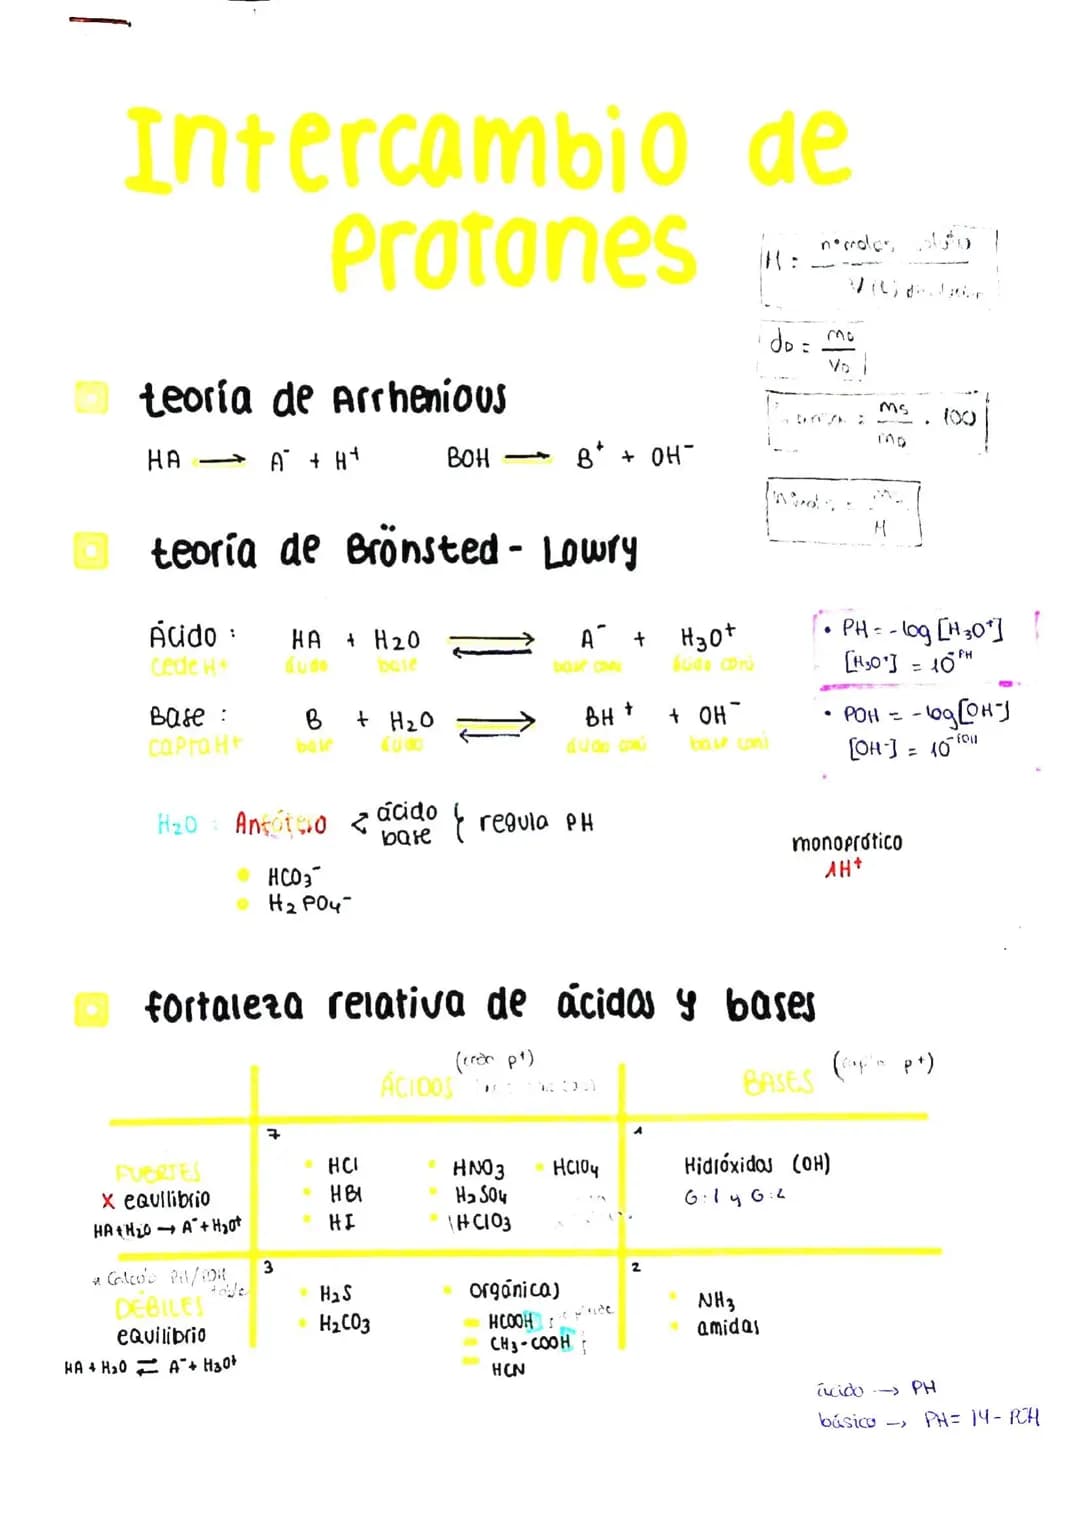 Intercambio de
Protones
M = nº moles soluto
V (L) disolución
dD = mD
VD
= ms . 100
mD
M
teoría de Arrhenious
HA → A⁻ + H⁺ BOH → B⁺ + OH⁻
teoría de Brönsted - Lowry
Ácido : HA + H2O ⇌ A⁻ + H3O⁺
cede H+ ácido base base conj ácido conj
Base : B + H2O ⇌ BH⁺ + OH⁻
capta H+ base ácido ácido conj base conj
• PH = -log [H3O⁺]
[H3O⁺] = 10⁻ᴾᴴ
• POH = -log[OH⁻]
[OH⁻] = 10⁻ᴾᴼᴴ
H2O : Anfótero < ácido
base } regula PH
• HCO3⁻
• H2PO4⁻
monoprótico
1H⁺
fortaleza relativa de ácidos y bases
ÁCIDOS (ceden p⁺)
BASES (captan p⁺)
FUERTES
X equilibrio
HA + H2O → A⁻ + H3O⁺
• HCl
• HBr
• HI
• HNO3
• H2SO4
• HClO3
• HClO4
1
Hidróxidos (OH)
G:1 y G:2
* Calcular PH/POH
DÉBILES
equilibrio
HA + H2O ⇌ A⁻ + H3O⁺
3
• H2S
• H2CO3
• orgánicas
HCOOH se pierde
CH3-COOH
HCN
2
• NH3
• amidas
ácido → PH
básico → PH = 14 - POH